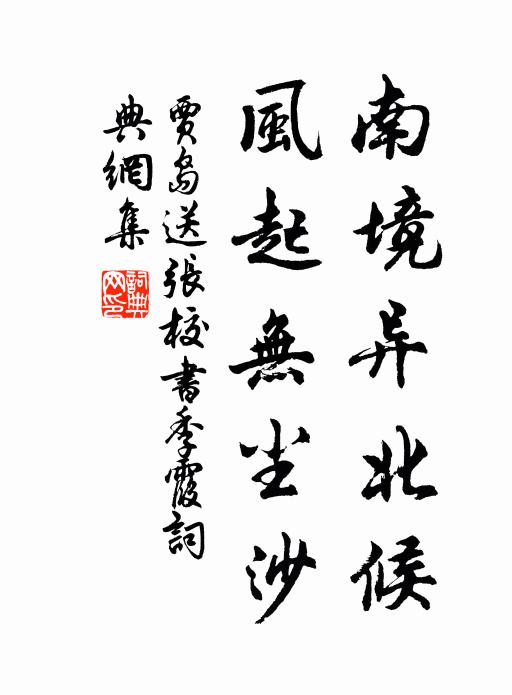 南境异北候
風起無尘沙
賈島送張校書季霞詞
典網集
詞典網印